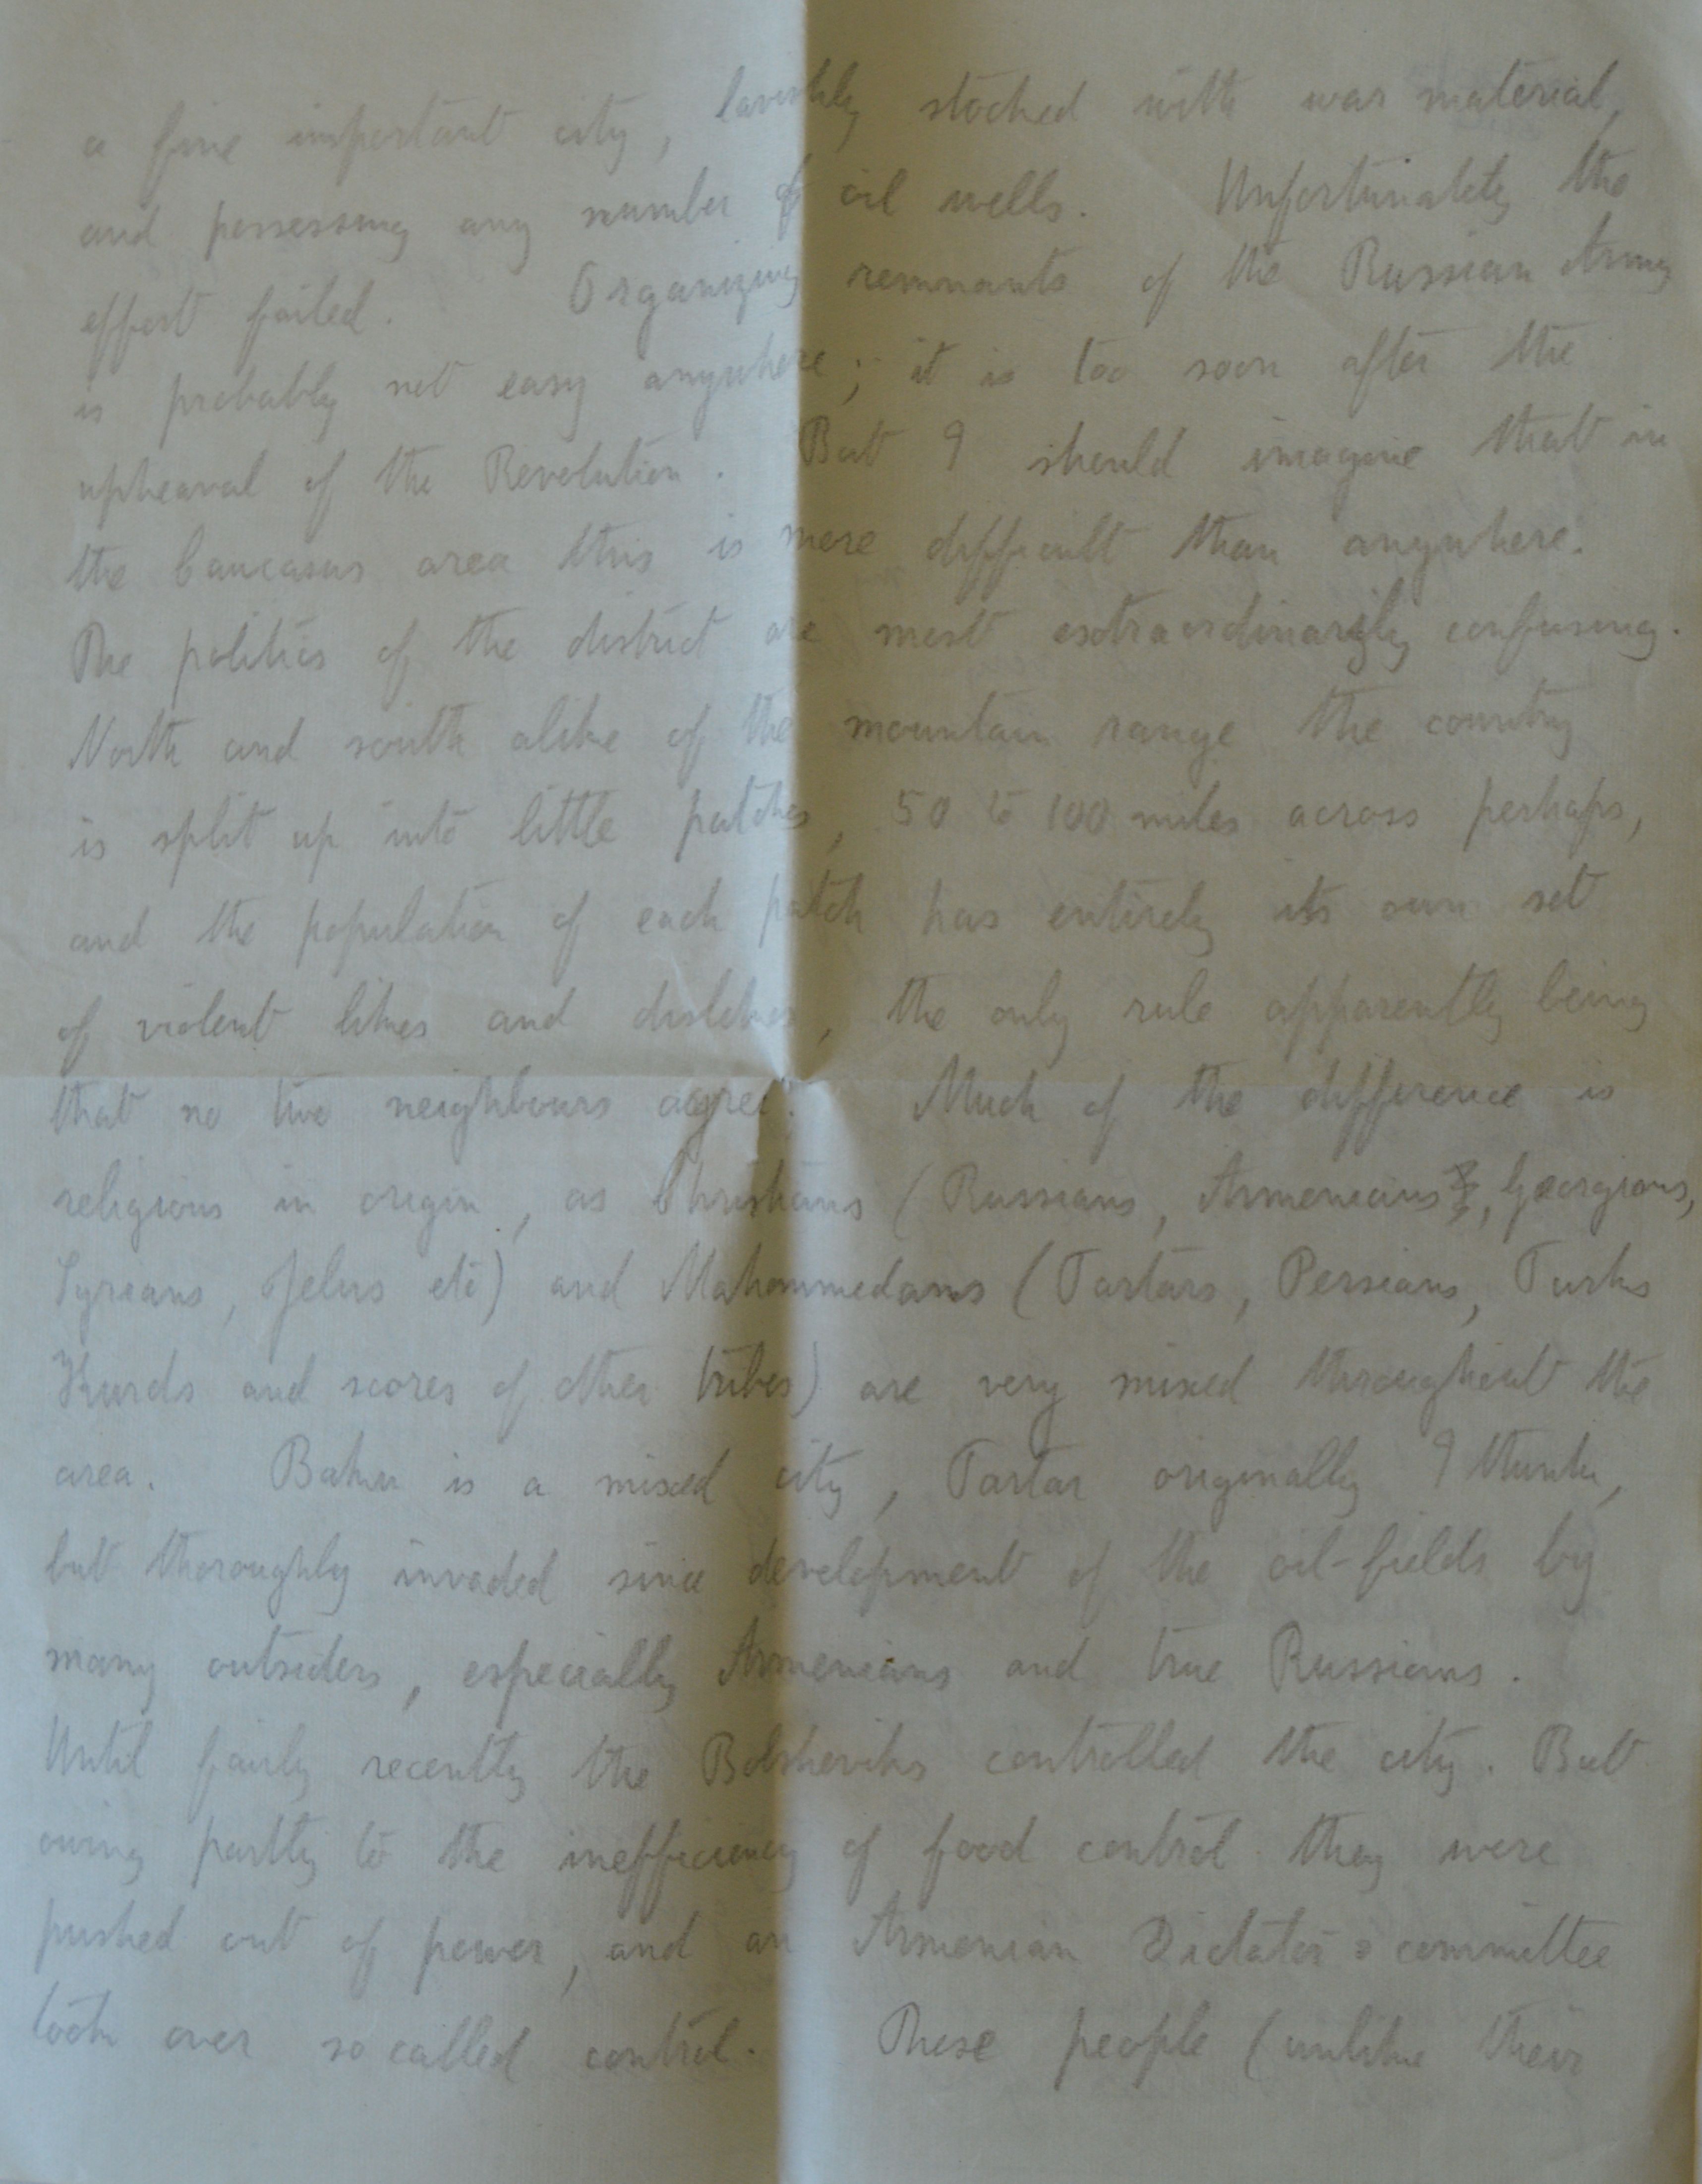 a fine important city, lavishly stocked with war material,
and possessing any number of oil wells. Unfortunately the
effort failed. Organizing remnants of the Russian Army
is probably not easy anywhere; it is too soon after the
upheaval of the Revolution. But I should imagine that in
the Caucasus area this is more difficult than anywhere.
The politics of the district are most extraordinarily confusing.
North and south alike of the mountain range the country
is split up into little patches, 50 to 100 miles across perhaps,
and the population of each patch has entirely its own set
of violent likes and dislikes, the only rule apparently being
that no two neighbours agree. Much of the difference is
religious in origin, as Christians (Russians, Armenians, Georgians,
Syrians, Jelus etc) and Mahommedans (Tartars, Persians, Turks
Kurds and scores of other tribes) are very mixed throughout the
area. Baku is a mixed city, Tartar originally I think,
but thoroughly invaded since development of the oil-fields by
many outsiders, especially Armenians and true Russians.
Until fairly recently the Bolsheviks controlled the city. But
owing partly to the inefficiency of food control they were
pushed out of power, and an Armenian Dictator & committee
took over so called control. These people (unlike their